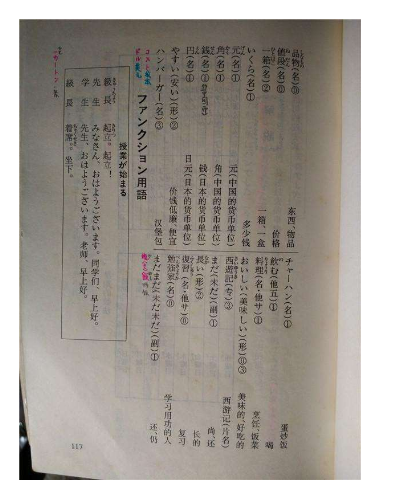 品物(名)◎ 东西、物品
値段(名)◎ 价格
一箱(名)② 一箱、一盒
いくら(名)① 多少钱
元(名)① 元(中国的货币单位)
角(名)① 角(中国的货币单位)
銭(名)① 钱(日本的货币单位)
円(名)① 日元(日本的货币单位)
やすい(安い)(形)② 价钱低廉、便宜
ハンバーガー(名)③ 汉堡包
チャーハン(名)① 蛋炒饭
飲む(他五)① 喝
料理(名・他サ)① 烹饪、饭菜
おいしい(美味しい)(形)◎③ 美味的、好吃的
西遊記(专)③ 西游记(片名)
まだ(未だ)(副)① 尚、还
長い(形)② 长的
復習(名・他サ)◎ 复习
勉強家(名)◎ 学习用功的人
まだまだ(未だ未だ)(副)① 还、仍
ファンクション用語
授業が始まる
級長 起立。起立!
先生 みなさん、おはようございます。同学们、早上好。
学生 先生、おはようございます。老师、早上好。
級長 着席。坐下。
117